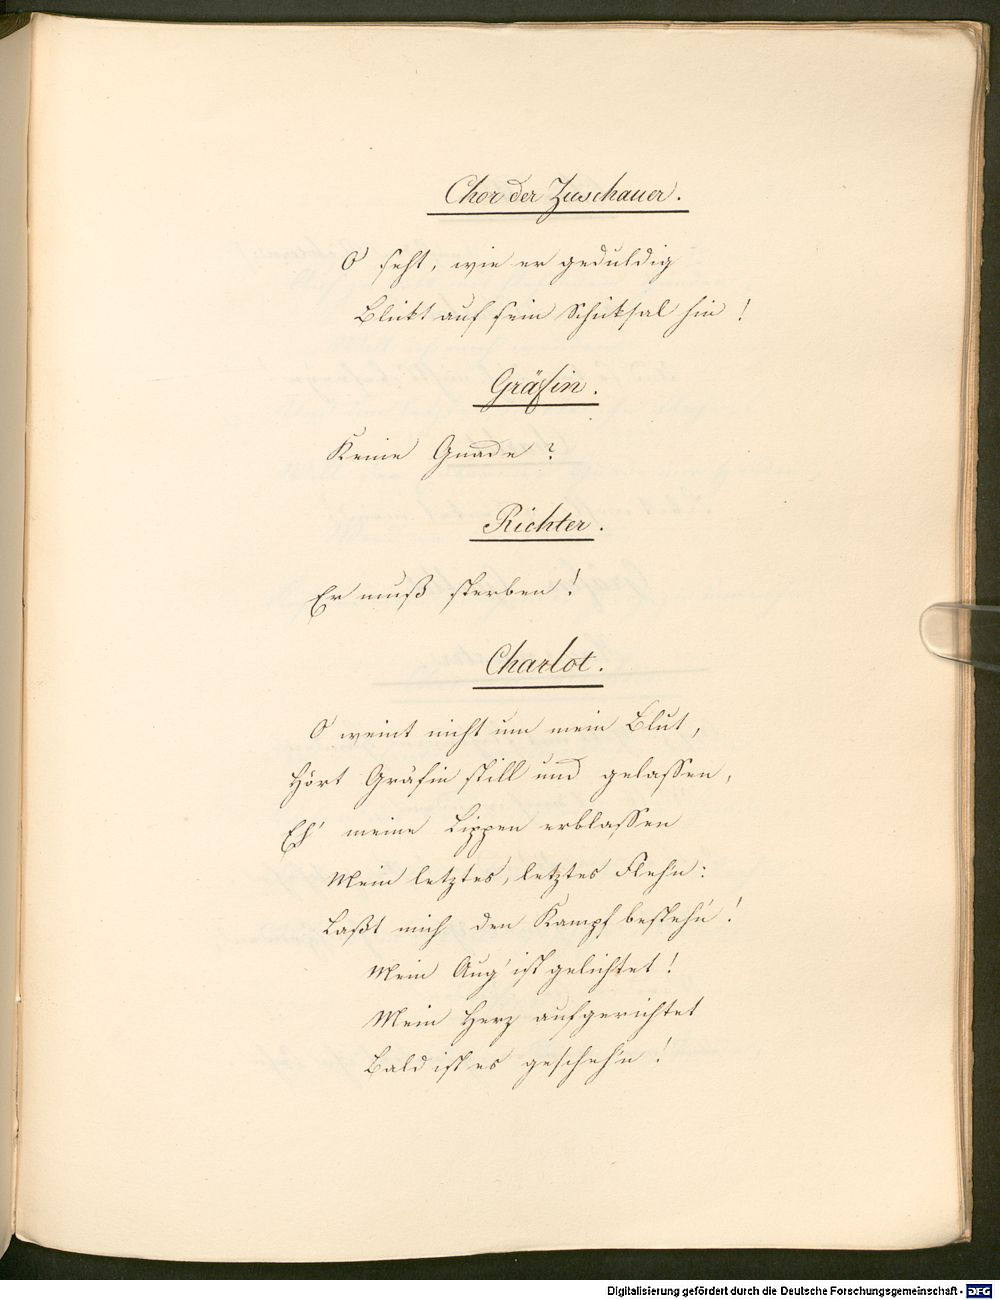 Chor der Zuschauer.
O seht, wie er geduldig
Blickt auf sein Schicksal hin!
Gräfin.
Keine Gnade?
Richter.
Er muß sterben!
Charlot.
O weint nicht um mein Blut,
Hört Gräfin still und gelassen,
Eh' meine Lippen erblassen
Mein letztes, letztes Fleh'n:
Laßt mich den Kampf besteh'n!
Mein Aug' ist gelichtet!
Mein Herz aufgerichtet
Bald ist es gescheh'n!
Digitalisierung gefördert durch die Deutsche Forschungsgemeinschaft - DFG